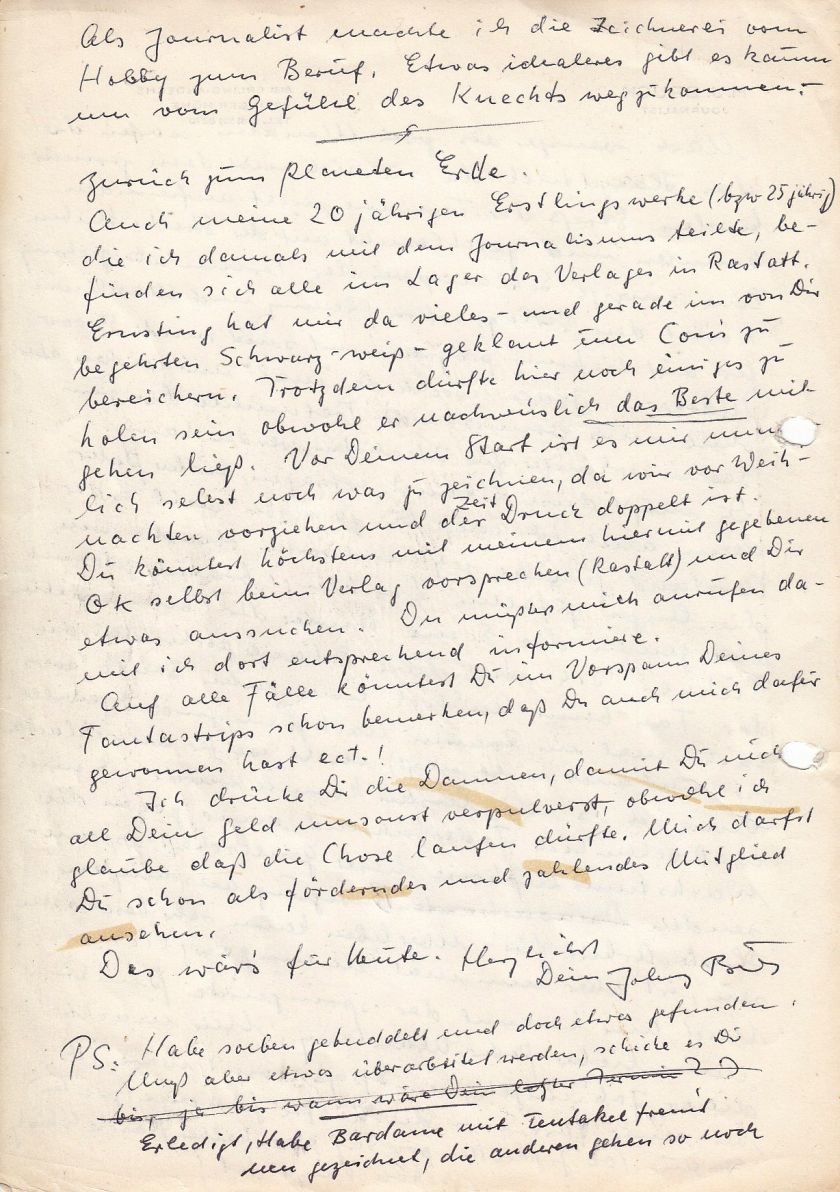 Als Journalist machte ich die Zeichnerei vom
Hobby zum Beruf. Etwas idealeres gibt es kaum
um vom Gefühl des Knechts wegzukommen.
Zurück zum Planeten Erde.
Auch meine 20 jährigen Erstlingswerke (bzw 25 jährig)
die ich damals mit dem Journalismus teilte, be-
finden sich alle im Lager des Verlages in Rastatt.
Ernsting hat mir da vieles - und gerade im von Dir
begehrten Schwarz-weiß - geklaut um Conis zu
bereichern. Trotzdem dürfte hier noch einiges zu
holen sein obwohl er nachweislich das Beste mit
gehen ließ. Vor Deinem Start ist es mir
lich selbst noch was zu zeichnen, da wir vor Weih-
nachten vorziehen und der Zeit Druck doppelt ist.
Du könntest höchstens mit meinem hiermit gegebenen
OK selbst beim Verlag vorsprechen (Rastatt) und Dir
etwas aussuchen. Du müßtes mich anrufen da-
mit ich dort entsprechend informiere.
Auf alle Fälle könntest Du im Vorspann Deines
Fantastrips schon bemerken, daß Du auch mich dafür
gewonnen hast ect.!
Ich drücke Dir die Daumen, damit Du nich
all Dein Geld umsonst verpulverst, obwohl ich
glaube daß die Chose laufen dürfte. Mich darfst
Du schon als förderndes und zahlendes Mitglied
ansehen.
Das wär's für Heute. Herzlichst
Dein Johnny
PS: Habe soeben gebuddelt und doch etwas gefunden.
Muß aber etwas überarbeitet werden, schicke es Dir
bis, ja bis wann wäre Dein letzter Termin??
Erledigt, Habe Bardame mit Tentakel fremd
neu gezeichnet, die anderen gehen so noch